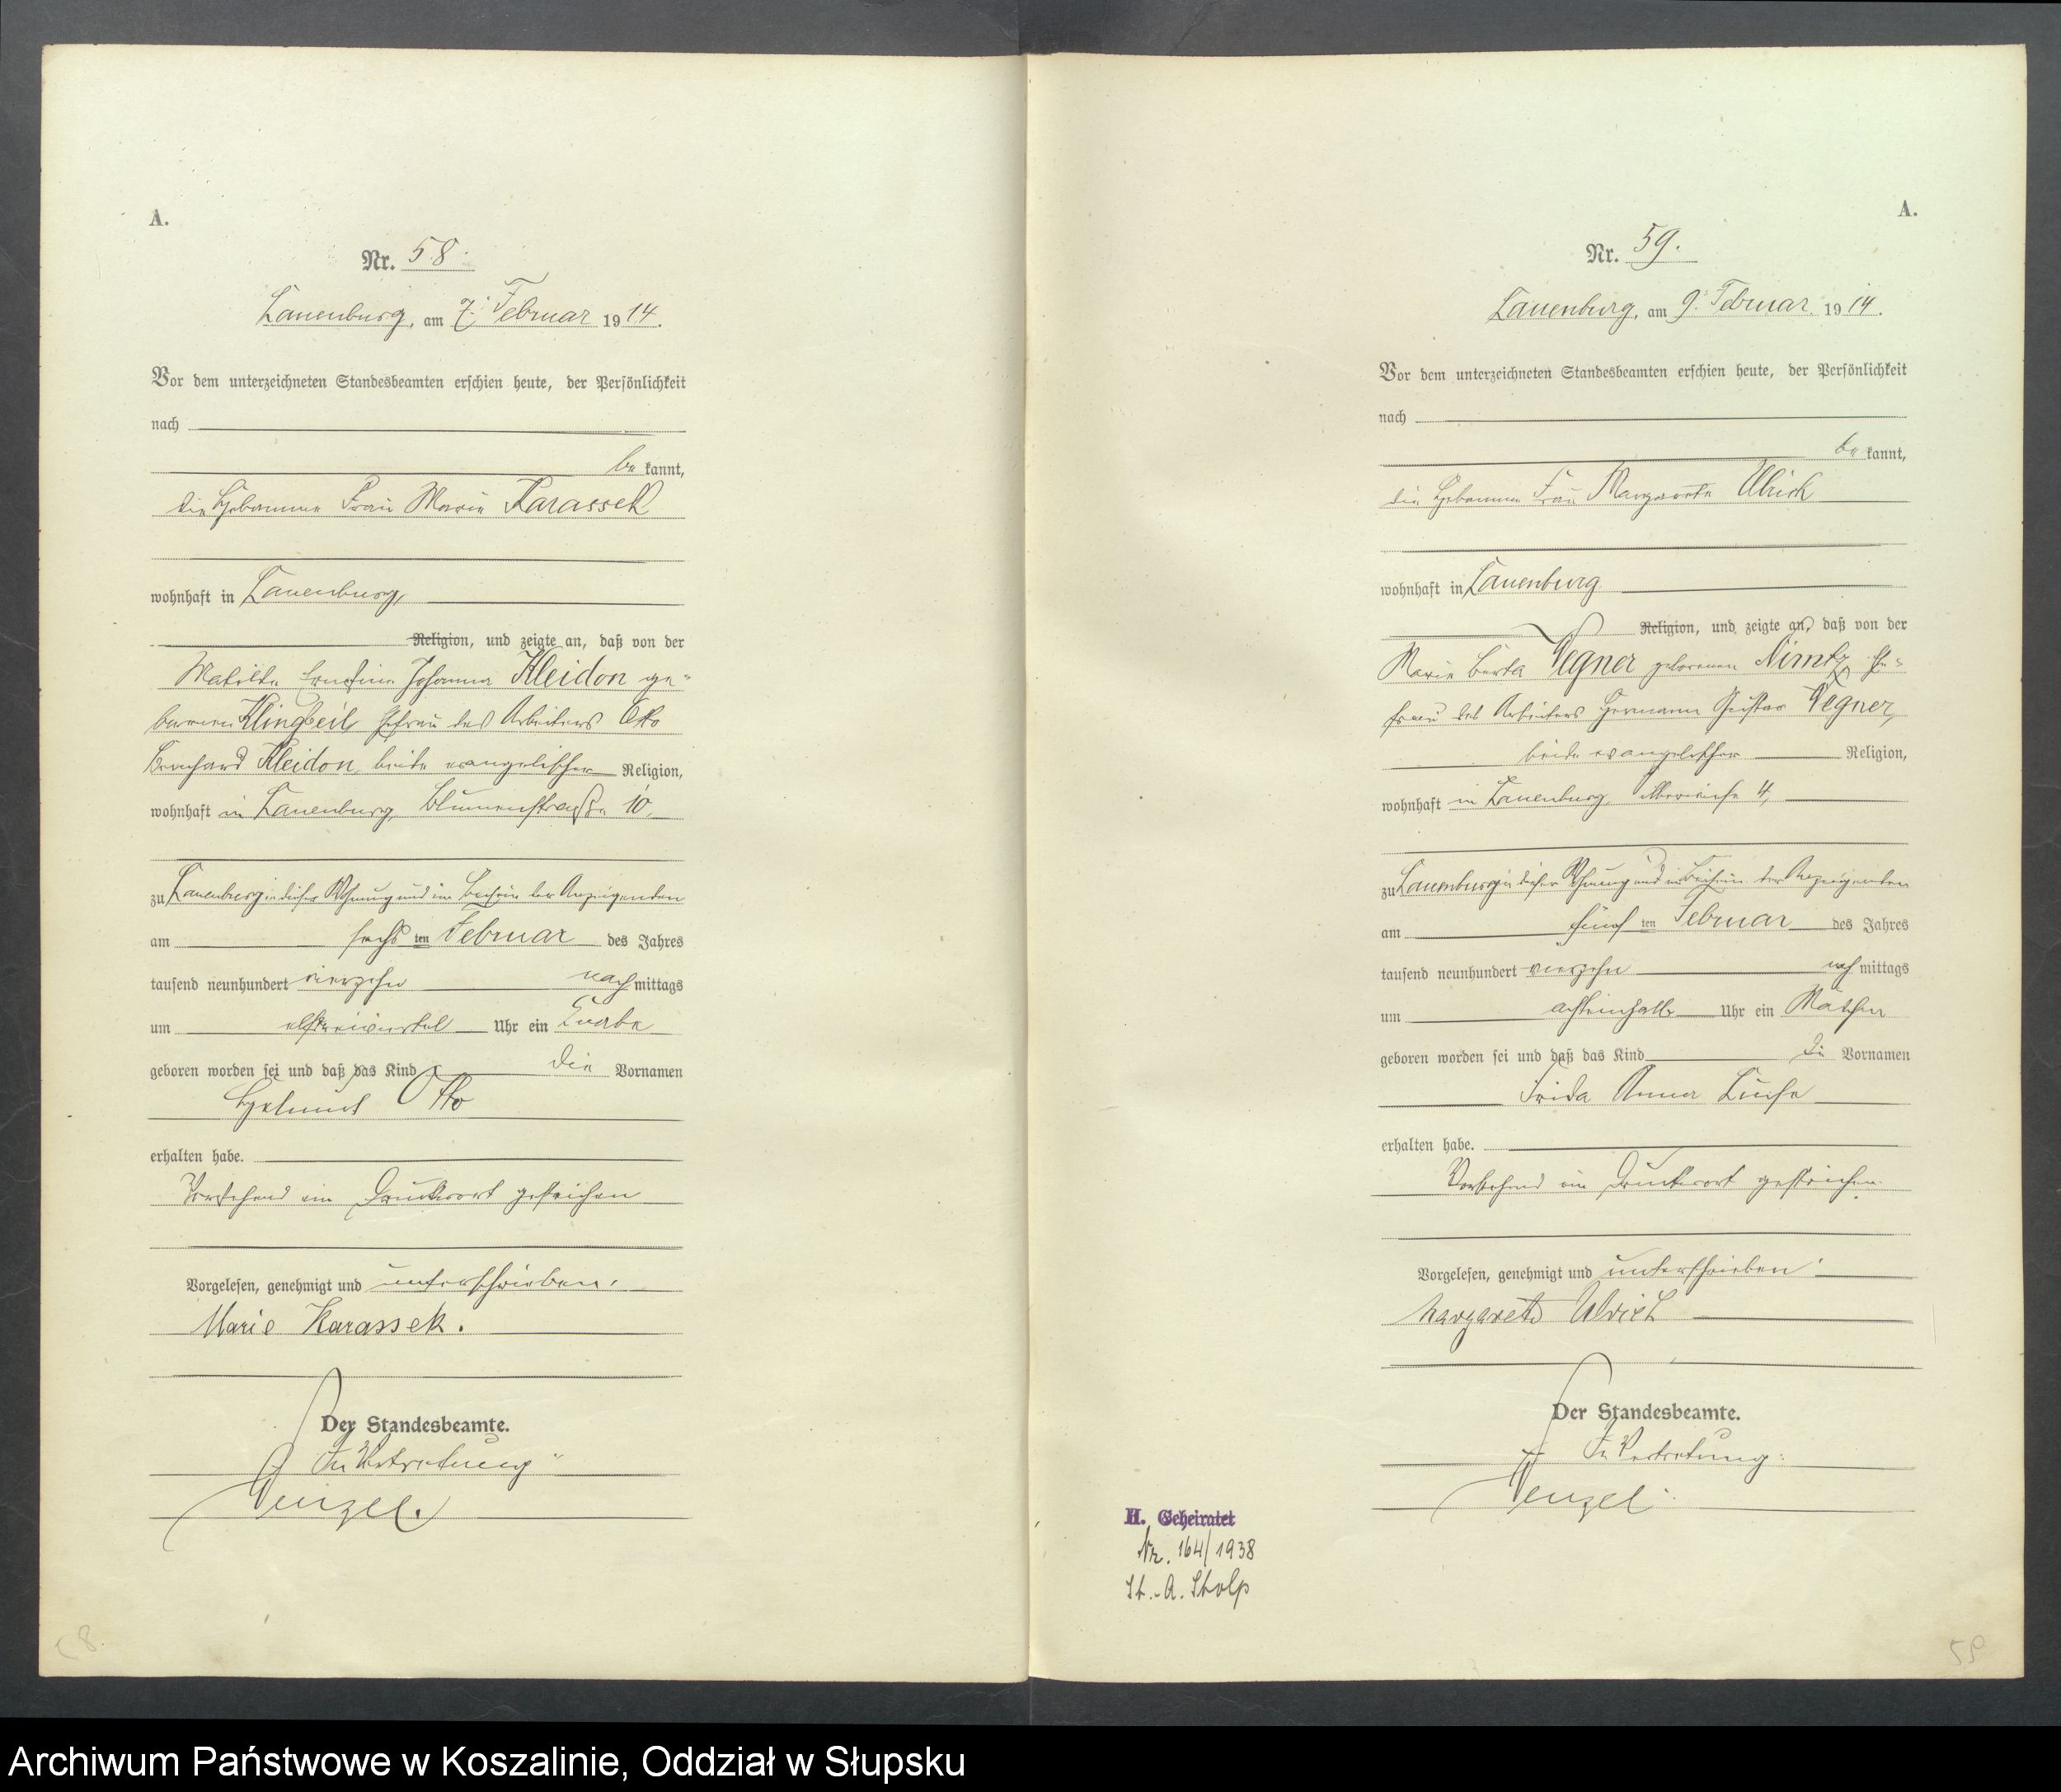 A.
Nr. 58.
Lauenburg, am 7. Februar 1914.
Vor dem unterzeichneten Standesbeamten erschien heute, der Persönlichkeit
nach
be kannt,
die Hebamme Frau Marie Karassek
wohnhaft in Lauenburg,
Religion, und zeigte an, daß von der
Mathilde Ernestine Johanna Kleidon ge-
borenen Klingbeil Ehefrau des Arbeiters Otto
Bernhard Kleidon, beide evangelischer Religion,
wohnhaft in Lauenburg, Blumenstraße 10,
zu Lauenburg in dieser Wohnung und im Beisein der Anzeigenden
am sechs ten Februar des Jahres
tausend neunhundert vierzehn nach mittags
um elfdreiviertel Uhr ein Knabe
geboren worden sei und daß das Kind die Vornamen
Helmut Otto
erhalten habe.
Vorstehend ein Druckwort gestrichen
Vorgelesen, genehmigt und unterschrieben.
Marie Karassek.
Der Standesbeamte.
In Vertretung:
Wenzel.
58.
A.
Nr. 59.
Lauenburg, am 9. Februar 1914.
Vor dem unterzeichneten Standesbeamten erschien heute, der Persönlichkeit
nach
be kannt,
die Hebamme Frau Margarete Ulrich
wohnhaft in Lauenburg
Religion, und zeigte an, daß von der
Marie Berta Wegner geborenen Nimtz, Ehe-
frau des Arbeiters Hermann Gustav Wegner,
beide evangelischer Religion,
wohnhaft in Lauenburg, 4,
zu Lauenburg in dieser Wohnung und im Beisein der Anzeigenden
am fünf ten Februar des Jahres
tausend neunhundert vierzehn nach mittags
um achteinhalb Uhr ein Mädchen
geboren worden sei und daß das Kind die Vornamen
Frida Anna Luise
erhalten habe.
Vorstehend ein Druckwort gestrichen.
Vorgelesen, genehmigt und unterschrieben.
Margarete Ulrich
Der Standesbeamte.
In Vertretung:
Wenzel.
H. Geheiratet
Nr. 164/1938
St.-A. Stolp
59
Archiwum Państwowe w Koszalinie, Oddział w Słupsku